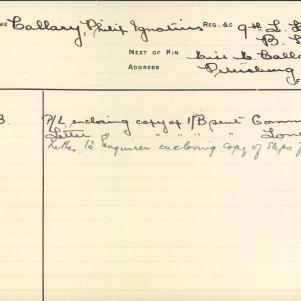 ME Callary, Philip Ignatius REG., &C 9th L. H
B. L
NEXT OF KIN Miss C. Calla
ADDRESS Petersburg
3. P/L, enclosing copy of 1/B sent Comm
Letter " " " " Lon
Letter to Enquirer enclosing copy of steps